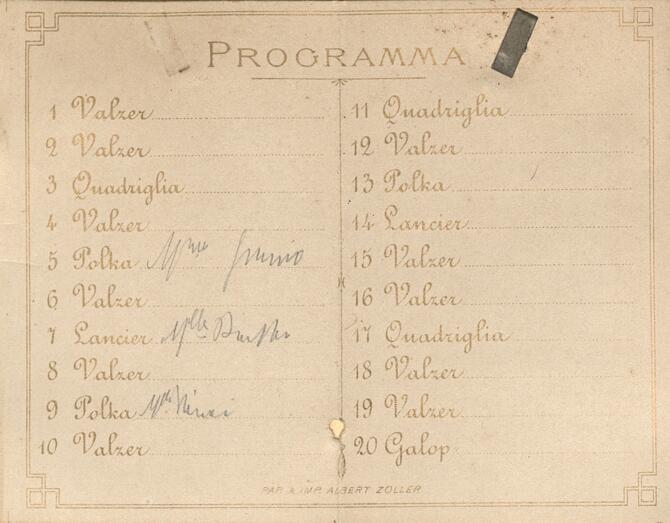 PROGRAMMA
1 Valzer
2 Valzer
3 Quadriglia
4 Valzer
5 Polka Mme
6 Valzer
7 Lancier Mlle
8 Valzer
9 Polka Mlle
10 Valzer
11 Quadriglia
12 Valzer
13 Polka
14 Lancier
15 Valzer
16 Valzer
17 Quadriglia
18 Valzer
19 Valzer
20 Galop
PAP. & IMP. ALBERT ZOLLER